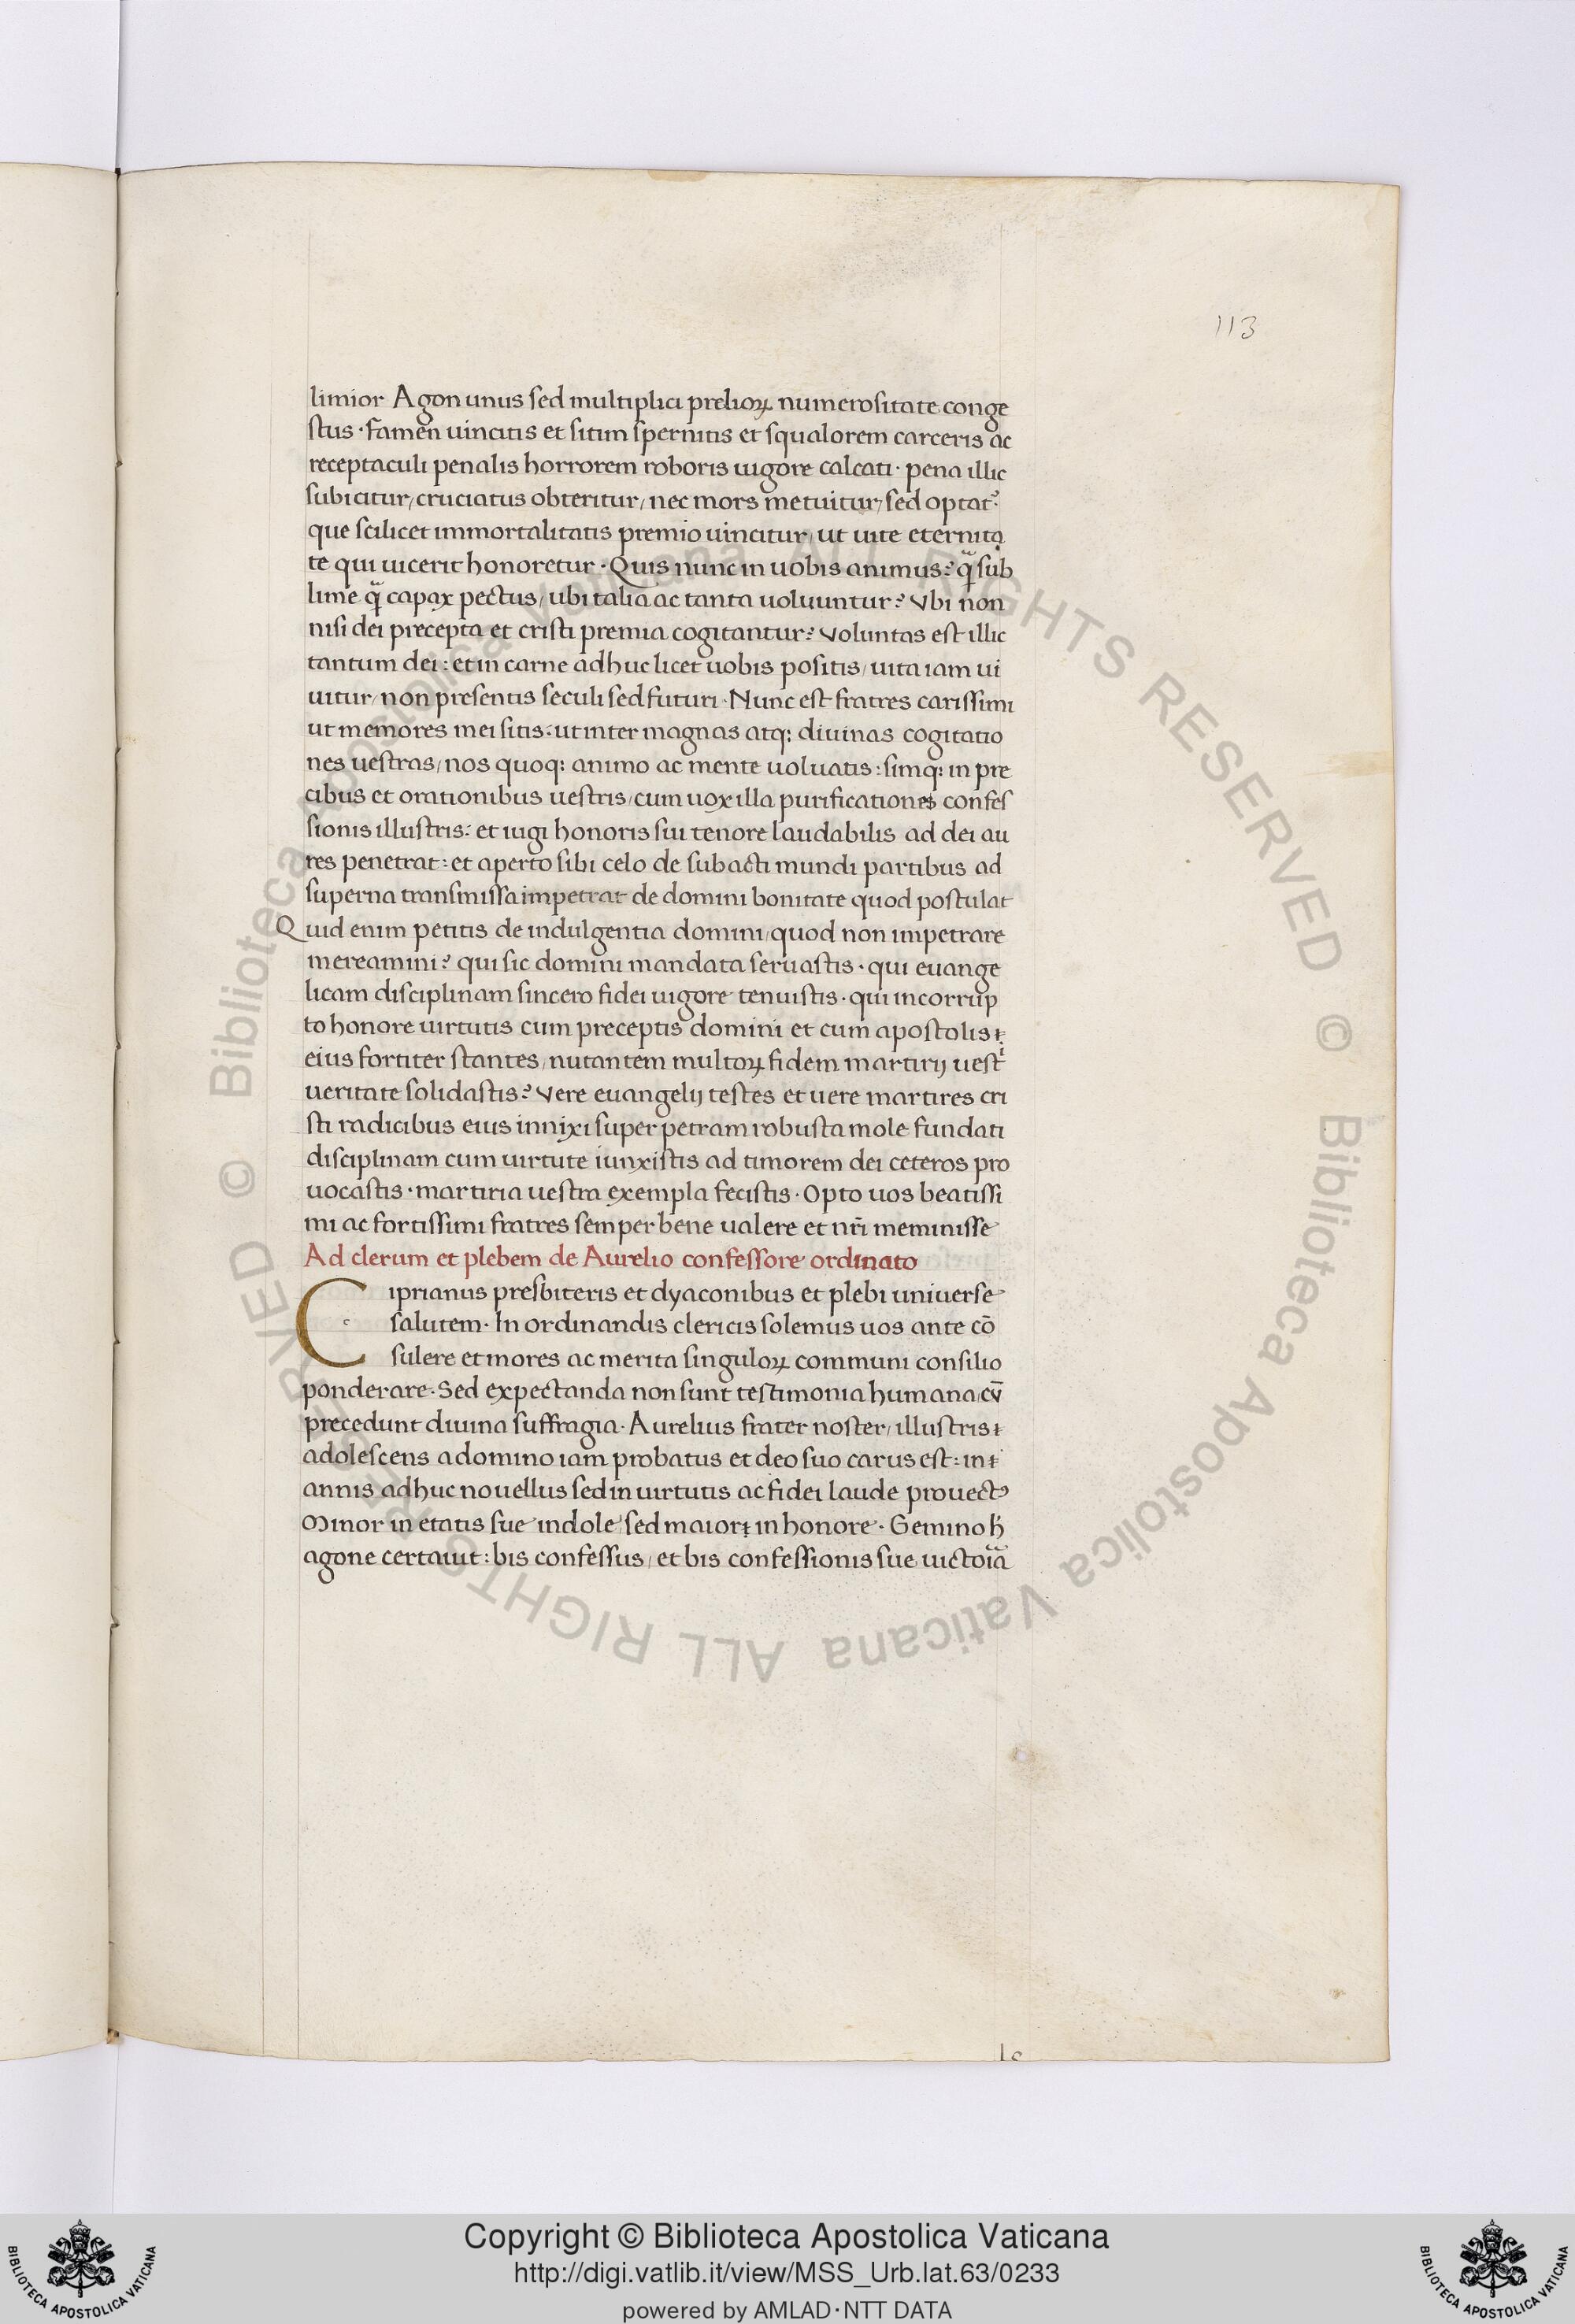 113
limior Agon unus sed multiplici prelioꝝ numerositate conge
stus · famen uincitis et sitim spernitis et squalorem carceris ac
receptaculi penalis horrorem roboris uigore calcati · pena illic
subicitur / cruciatus obteritur / nec mors metuitur / sed optat᷒ :
que scilicet immortalitatis premio uincitur / ut uite eternita
te qui uicerit honoretur · Quis nunc in uobis animus? q̃ sub
lime q̃ capax pectus / ubi talia ac tanta uoluuntur? Vbi non
nisi dei precepta et cristi premia cogitantur? Voluntas est illic
tantum dei : et in carne adhuc licet uobis positis / uita iam ui
uitur / non presentis seculi sed futuri · Nunc est fratres carissimi
ut memores mei sitis : ut inter magnas atq; diuinas cogitatio
nes uestras / nos quoq; animo ac mente uoluatis : simq; in pre
cibus et orationibus uestris / cum uox illa purificationes confes
sionis illustris : et iugi honoris sui tenore laudabilis ad dei au
res penetrat : et aperto sibi celo de subacti mundi partibus ad
superna transmissa impetrat de domini bonitate quod postulat
Quid enim petitis de indulgentia domini / quod non impetrare
mereamini? qui sic domini mandata seruastis · qui euange
licam disciplinam sincero fidei uigore tenuistis · qui incorrup
to honore uirtutis cum preceptis domini et cum apostolis
eius fortiter stantes / nutantem multoꝝ fidem martirij uestͥ
ueritate solidastis? Vere euangelij testes et uere martires cri
sti radicibus eius innixi super petram robusta mole fundati
disciplinam cum uirtute iunxistis ad timorem dei ceteros pro
uocastis · martiria uestra exempla fecistis · Opto uos beatissi
mi ac fortissimi fratres semper bene ualere et nr̃i meminisse
Ad clerum et plebem de Aurelio confessore ordinato
Ciprianus presbiteris et dyaconibus et plebi uniuerse
salutem · In ordinandis clericis solemus uos ante cō
sulere et mores ac merita singuloꝝ communi consilio
ponderare · Sed expectanda non sunt testimonia humana / cū
precedunt diuina suffragia · Aurelius frater noster / illustris
adolescens a domino iam probatus et deo suo carus est : in
annis adhuc nouellus sed in uirtutis ac fidei laude prouectꝰ
Minor in etatis sue indole / sed maior in honore · Gemino h̓
agone certauit : bis confessus / et bis confessionis sue uictoĩa
© Biblioteca Apostolica Vaticana ALL RIGHTS RESERVED
© Biblioteca Apostolica Vaticana ALL RIGHTS RESERVED
Copyright © Biblioteca Apostolica Vaticana
http://digi.vatlib.it/view/MSS_Urb.lat.63/0233
powered by AMLAD·NTT DATA
BIBLIOTECA APOSTOLICA VATICANA
BIBLIOTECA APOSTOLICA VATICANA